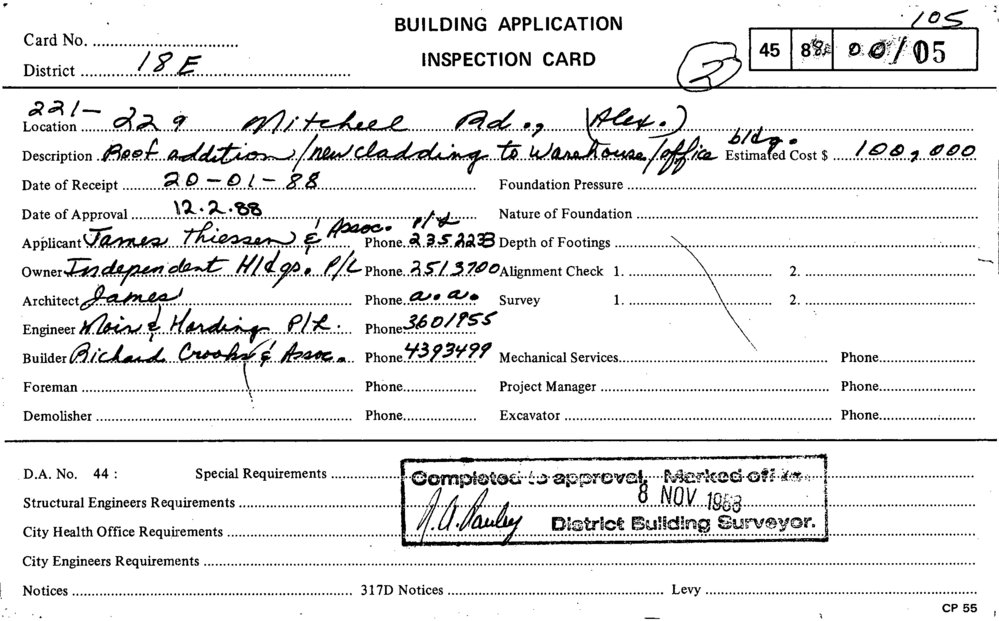 105
BUILDING APPLICATION
INSPECTION CARD
Card No.
District 18E
2
45 88 00/05
221-
Location 229 Mitchell Rd., (Alex.)
Description Roof addition/new cladding to Warehouse/office bldg. Estimated Cost $ 100,000
Date of Receipt 20-01-88 Foundation Pressure
Date of Approval 12.2.88 Nature of Foundation
Applicant James Thiessen & Assoc. P/L Phone. 2352233 Depth of Footings
Owner Independent Hldgs. P/L Phone. 2513700 Alignment Check 1. 2.
Architect James Phone. a.a. Survey 1. 2.
Engineer Moir & Harding P/L. Phone 3601955
Builder Richard Crooks & Assoc. Phone. 4393499 Mechanical Services Phone
Foreman Phone Project Manager Phone
Demolisher Phone Excavator Phone
D.A. No. 44 : Special Requirements
Completed to approval. Marked off
Structural Engineers Requirements
8 NOV 1988
City Health Office Requirements
District Building Surveyor.
City Engineers Requirements
Notices 317D Notices Levy
CP 55